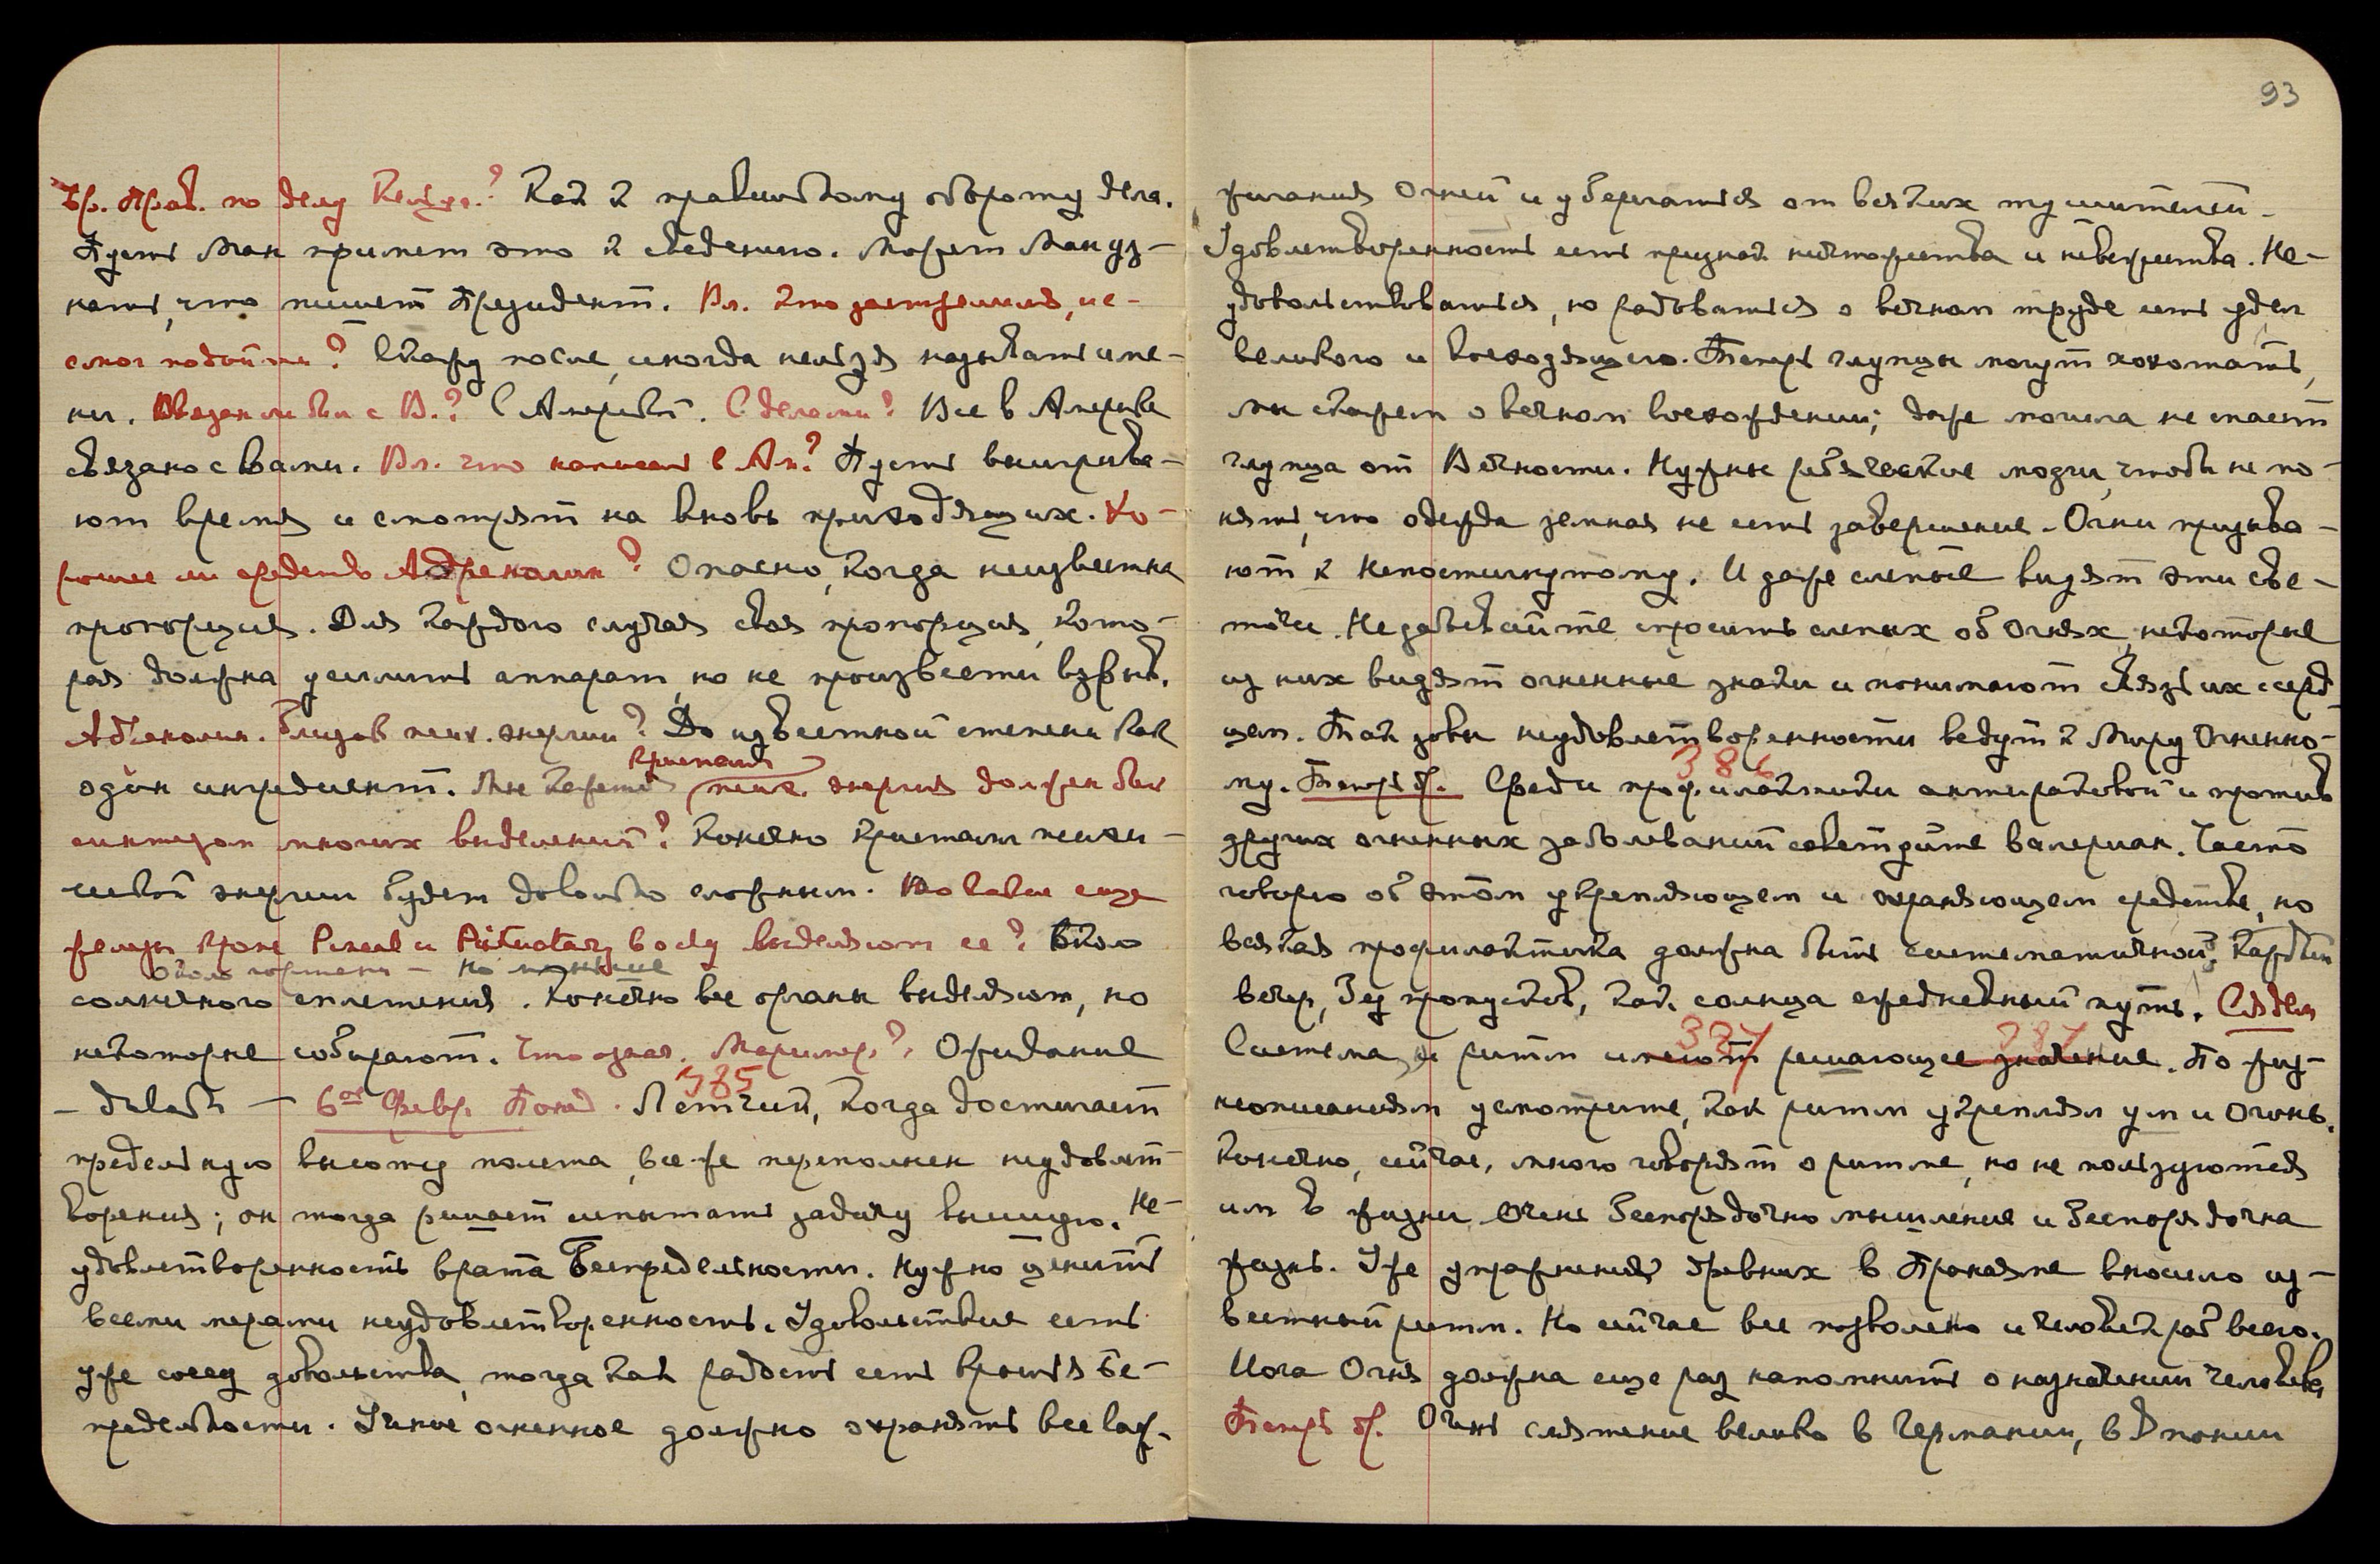 Бр. Прав. по делу Кельца? Как к правильному обороту дела.
Пусть Ман примет это к сведению. Может Ман уз-
нать, что пишет Президент. Вл. Кто застрелился, не
смог подойти? Скажу после, иногда нельзя называть име-
ни. Связан ли был с В.? С Америкой. С делами? Все в Америке
связано с вами. Вл. что написать в Ам.? Пусть выигрыва-
ют время и смотрят на вновь приходящих. Хо-
рошее ли средство Адреналин? Опасно, когда неизвестна
пропорция. Для каждого случая своя пропорция, кото-
рая должна усилить аппарат, но не произвести взрыв.
Адреналин близок псих. энергии? До известной степени как
один ингредиент. Мне кажется Кристалл псих. энергии должен быть
синтезом многих выделений? Конечно кристалл психи-
ческой энергии будет довольно сложным. Но какие еще
железы кроме Pineal и Pituitary body выделяют ее? Около
Около гортани – но меньше
солнечного сплетения. Конечно все органы выделяют, но
некоторые собирают. Что означ. Ожидание
– дикой – 6ое Февр. Понед. 385 Летчик, когда достигает
предельную высоту полета, все же переполнен неудовлет-
ворения; он тогда решает испытать задачу высшую. Не-
удовлетворенность врата Беспредельности. Нужно ценить
всеми мерами неудовлетворенность. Удовольствие есть
уже сосед довольства, тогда как радость есть крылья Бес-
предельности. Учение огненное должно охранять все каж-
93
жигания Огней и уберегаться от всяких тушителей.
Удовлетворенность есть признак ничтожества и невежества. Не
удовольствоваться, но радоваться о вечном труде есть удел
великого и восходящего. Теперь глупцы могут хохотать,
мы скажем о вечном восхождении; даже могила не спасет
глупца от Вечности. Нужны рабические мозги, чтобы не по-
нять, что одежда земная не есть завершение. Огни призыва-
ют к Непостигнутому. И даже слепые видят эти све-
точи. Не забывайте спросить слепых об Огнях, некоторые
из них видят огненные знаки и понимают связь их с серд-
цем. Так зовы неудовлетворенности ведут к Миру Огненно-
му. Теперь др. 386 Среди профилактики антираковой и против
других огненных заболеваний советуйте валериан. Часто
говорю об этом укрепляющем и охраняющем средстве, но
всякая профилактика должна быть систематичной. Каждый
вечер, без пропусков, как солнца ежедневный путь. Следом
387 387
Система и ритм имеют решающее значение. По жиз-
неописаниям усмотрите, как ритм укреплял ум и Огонь.
Конечно, сейчас, много говорят о ритме, но не пользуются
им в жизни. Очень беспорядочно мышление и беспорядочна
жизнь. Уже упражнения древних в Пранаяме вносило из-
вестный ритм. Но сейчас все позволено и человек раб всего.
Иога Огня должна еще раз напомнить о назначении человека
Теперь др. Очень смятение велико в Германии, в Японии